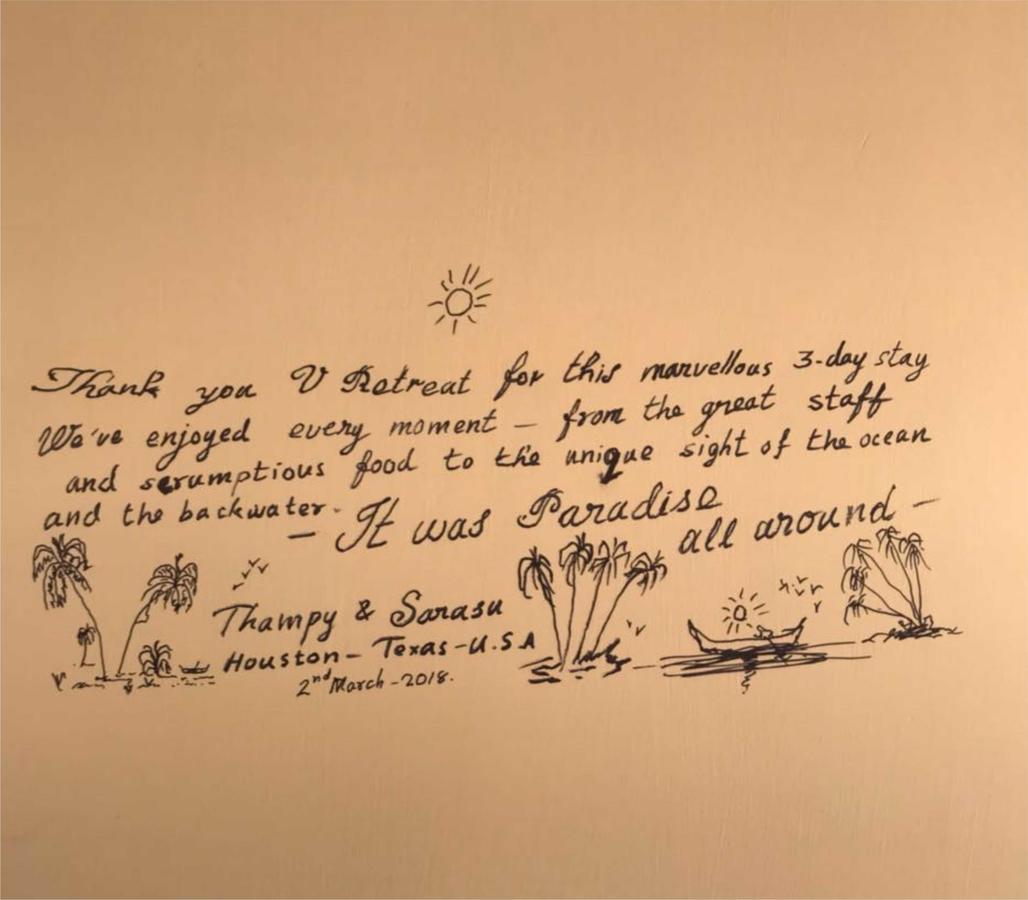 Thank you V Retreat for this marvellous 3-day stay
We've enjoyed every moment – from the great staff
and scrumptious food to the unique sight of the ocean
and the backwater.
– It was Paradise
all around –
Thampy & Sarasu
Houston – Texas – U.S.A
2nd March – 2018.